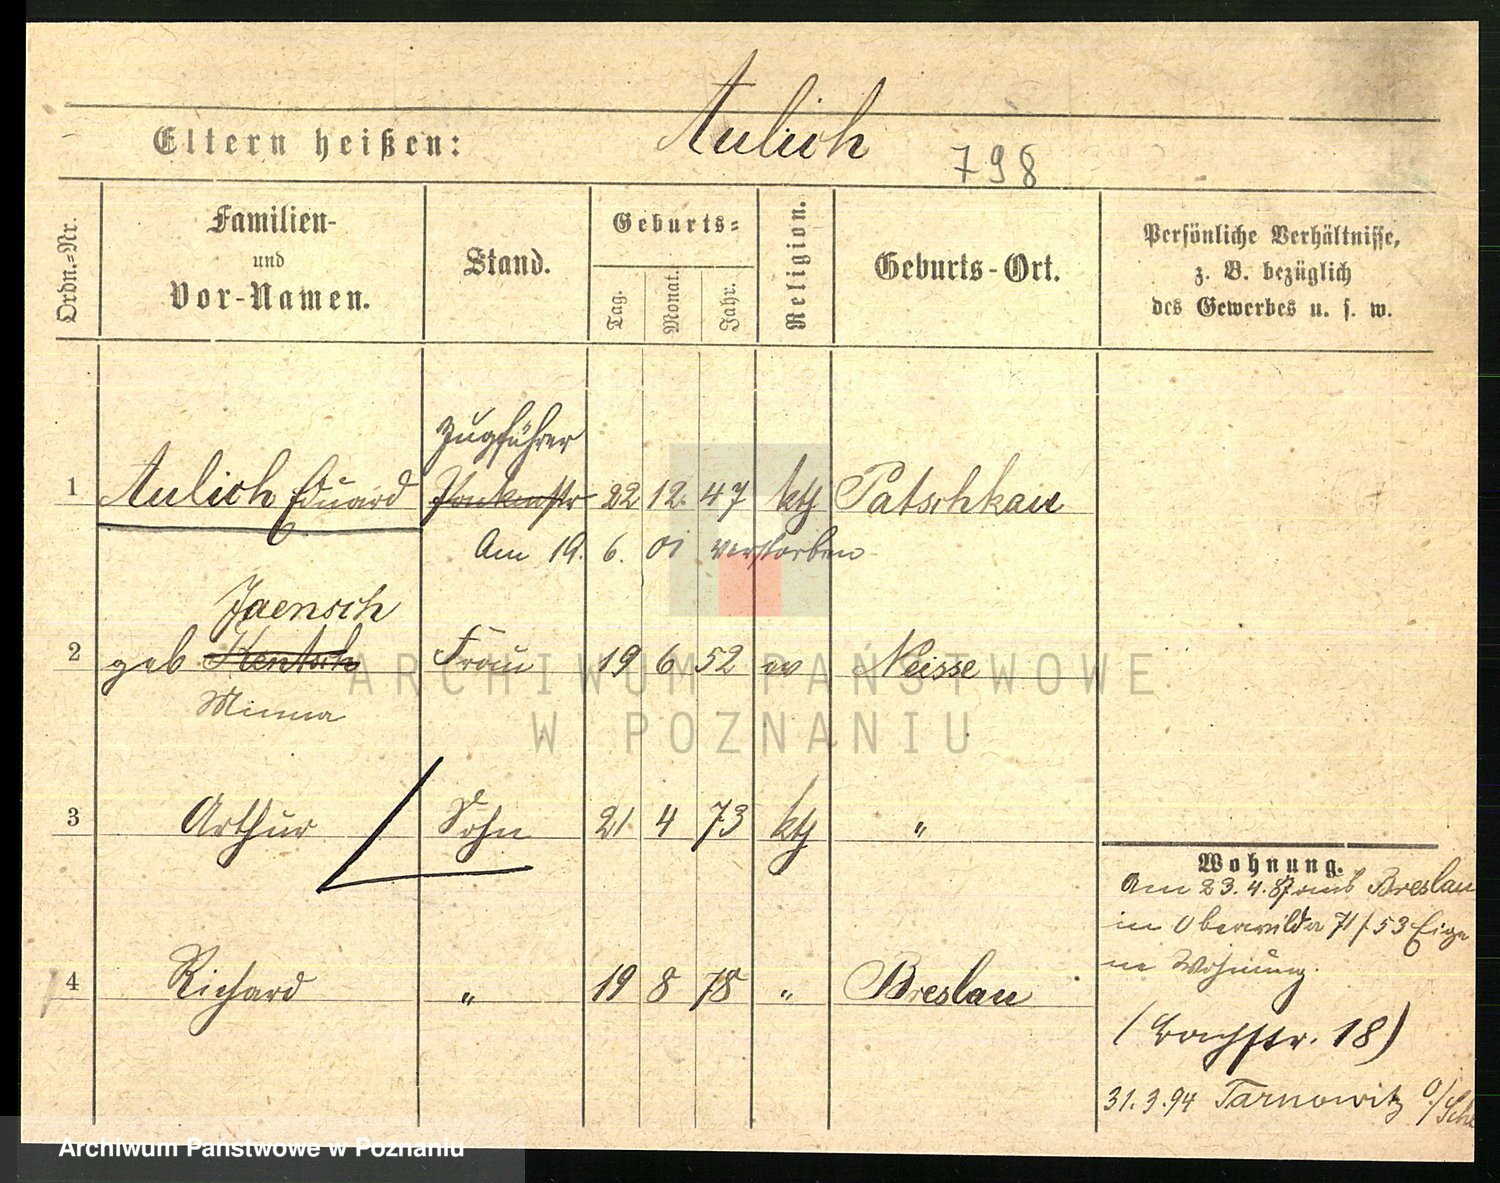 Aulich
Eltern heißen:
798
Ordn.-Nr.
Familien-
und
Vor-Namen.
Stand.
Geburts-
Tag.
Monat.
Jahr.
Religion.
Geburts-Ort.
Persönliche Verhältnisse,
z. B. bezüglich
des Gewerbes u. s. w.
Zugführer
1 Aulich Eduard 22 12. 47 kth Patschkau
Am 19. 6. 01 verstorben
Jaensch
2 geb Frau 19 6 52 ev Neisse
Minna
3 Arthur Sohn 21 4 73 kth "
4 Richard " 19 8 78 " Breslau
Wohnung.
Am 23.4.87 aus Breslau
in Oberwilda 71/53 Eige
ne Wohnung.
(Bachstr. 18)
31.3.94 Tarnowitz O/Schl
ARCHIWUM PAŃSTWOWE
W POZNANIU
Archiwum Państwowe w Poznaniu